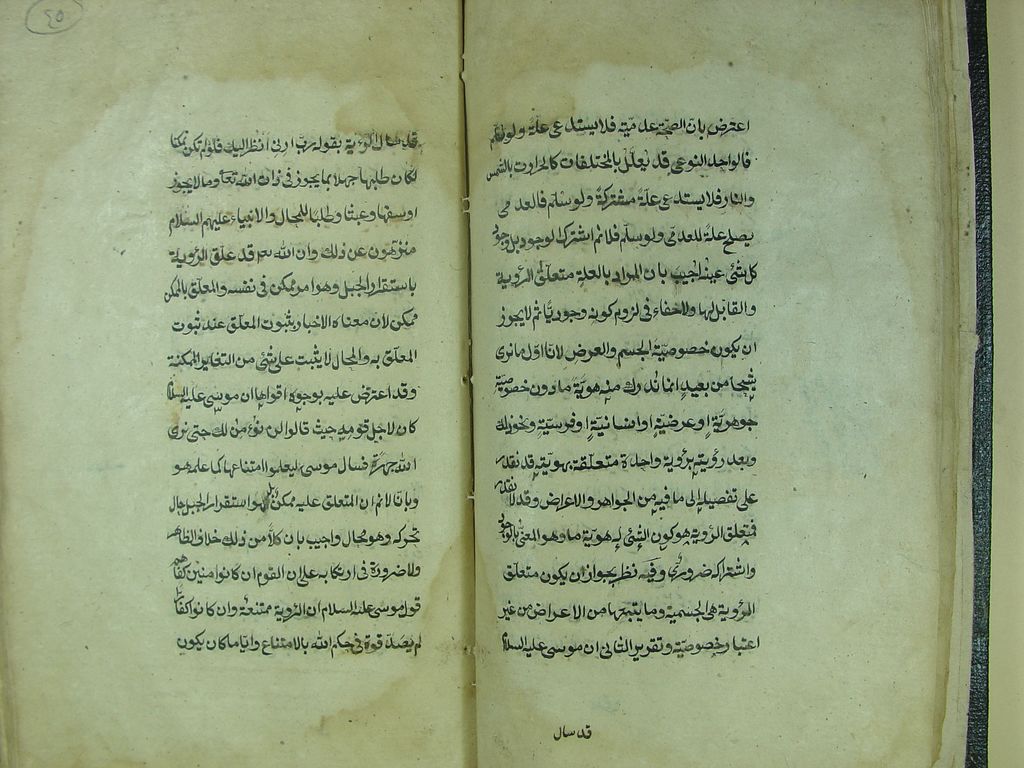 اعترض بان الصحة عدمية فلا يستدعى علة ولو سلم
فالواحد النوعى قد يعلل بالمختلفات كالحرارة بالشمس
والنار فلا يستدعى علة مشتركة ولو سلم فالعدمى
يصلح علة للعدمى ولو سلم فلا نم اشتراك الوجود بل وجود
كل شئ عينه اجيب بان المراد بالعلة متعلق الرؤية
والقابل لها ولا خفاء فى لزوم كونه وجوديا ثم لا يجوز
ان يكون خصوصية الجسم والعرض لانا اول ما نرى
شبحا من بعيد انما ندرك منه هوية ما دون خصوصية
جوهرية او عرضية او انسانية او فرسية ونحو ذلك
وبعد رؤيته برؤية واحدة متعلقة بهويته قد نقدر
على تفصيله الى ما فيه من الجواهر والاعراض وقد لا نقدر
فمتعلق الرؤية هو كون الشئ له هوية ما وهو المعنى بالوجود
واشتراكه ضرورى وفيه نظر لجواز ان يكون متعلق
الرؤية هى الجسمية وما يتبعها من الاعراض من غير
اعتبار خصوصيته وتقرير الثانى ان موسى عليه السلام
قد سال
٤٥
قد سال الرؤية بقوله رب ارنى انظر اليك فلو لم تكن ممكنا
لكان طلبها جهلا بما يجوز فى ذات الله تعالى وما لا يجوز
او سفها وعبثا وطلبا للمحال والانبياء عليهم السلام
منزهون عن ذلك وان الله تع قد علق الرؤية
باستقرار الجبل وهو امر ممكن فى نفسه والمعلق بالممكن
ممكن لان معناه الاخبار بثبوت المعلق عند ثبوت
المعلق به والمحال لا يثبت على شئ من التقادير الممكنة
وقد اعترض عليه بوجوه اقواها ان موسى عليه السلام
كان لاجل قومه حيث قالوا لن نؤمن لك حتى نرى
الله جهرة فسال موسى ليعلموا امتناعها كما علمه هو
وبانا لا نم ان المتعلق عليه ممكن بل هو استقرار الجبل حال
تحركه وهو محال واجيب بان كلا من ذلك خلاف الظاهر
ولا ضرورة فى ارتكابه على ان القوم ان كانوا مؤمنين كفاهم
قول موسى عليه السلام ان الرؤية ممتنعة وان كانوا كفارا
لم يصدقوه فى حكم الله بالامتناع وايا ما كان يكون